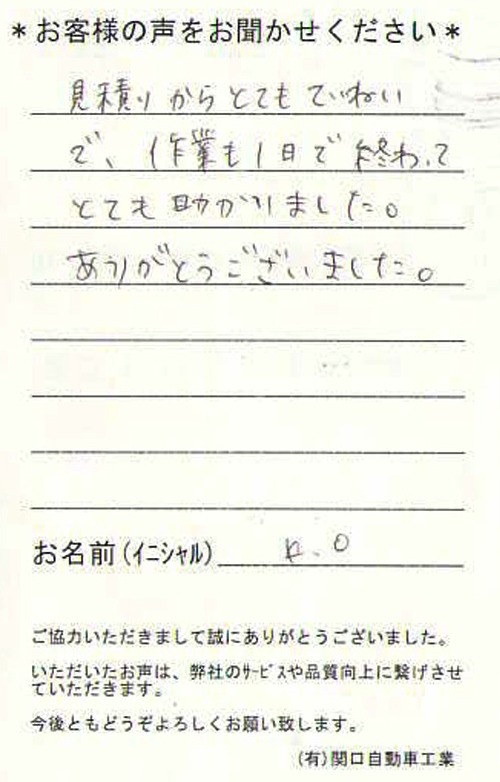 ＊お客様の声をお聞かせください＊
見積りからとてもていねい
で、作業も1日で終わって
とても助かりました。
ありがとうございました。
お名前(ｲﾆｼｬﾙ) k.O
ご協力いただきまして誠にありがとうございました。
いただいたお声は、弊社のｻｰﾋﾞｽや品質向上に繋げさせ
ていただきます。
今後ともどうぞよろしくお願い致します。
(有)関口自動車工業